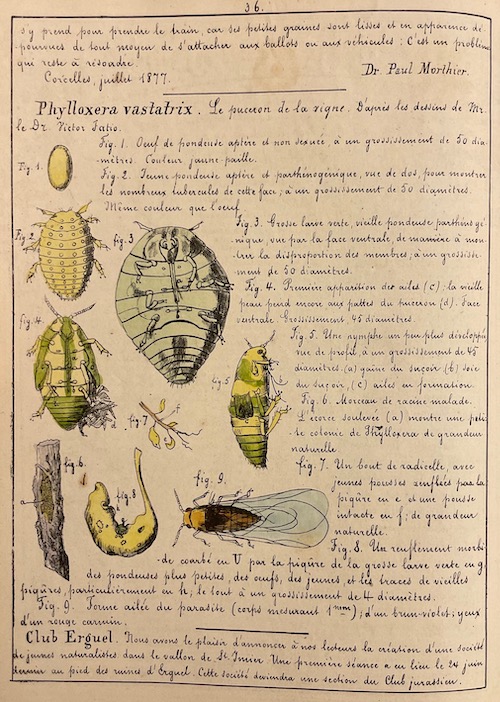 36.
s'y prend pour prendre le train, car ses petites graines sont lisses et en apparence dé-
pourvues de tout moyen de s'attacher aux ballots ou aux véhicules; C'est un problème
qui reste à résoudre.
Corcelles, juillet 1877.
Dr. Paul Morthier.
Phylloxera vastatrix. Le puceron de la vigne. D'après les dessins de Mr.
le Dr. Victor Fatio.
Fig. 1. Oeuf de pondeuse aptère et non sexuée, à un grossissement de 50 dia-
mètres. Couleur jaune-paille.
Fig. 2. Jeune pondeuse aptère et parthénogénique, vue de dos, pour montrer
les nombreux tubercules de cette face; à un grossissement de 50 diamètres.
Même couleur que l'oeuf.
Fig. 3. Grosse larve verte, vieille pondeuse parthénogé-
nique, vue par la face ventrale, de manière à mon-
trer la disproportion des membres; à un grossisse-
ment de 50 diamètres.
Fig. 4. Première apparition des ailes (c); la vieille
peau pend encore aux pattes du puceron (d). Face
ventrale. Grossissement, 45 diamètres.
Fig. 5. Une nymphe un peu plus développée
vue de profil à un grossissement de 45
diamètres. (a) gaine du suçoir (b) soie
du suçoir, (c) ailes en formation.
Fig. 6. Morceau de racine malade.
L'écorce soulevée (a) montre une peti-
te colonie de Phylloxera de grandeur
naturelle.
fig. 7. Un bout de radicelle, avec
jeunes pousses renflées par la
piqûre en e et une pousse
intacte en f; de grandeur
naturelle.
Fig. 8. Un renflement morbi-
de courbé en U par la piqûre de la grosse larve verte en g,
des pondeuses plus petites, des oeufs, des jeunes, et les traces de vieilles
piqûres, particulièrement en h; le tout à un grossissement de 4 diamètres.
Fig. 9. Forme ailée du parasite (corps mesurant 1mm); d'un brun-violet; yeux
d'un rouge carmin.
Club Erguel. Nous avons le plaisir d'annoncer à nos lecteurs la création d'une société
de jeunes naturalistes dans le vallon de St. Imier. Une première séance a eu lieu le 24 juin
dernier au pied des ruines d'Erguel. Cette société deviendra une section du Club jurassien.
Fig. 1.
Fig. 2
fig. 3
fig. 4
fig. 5
fig. 6.
fig. 7
fig. 8
fig. 9.